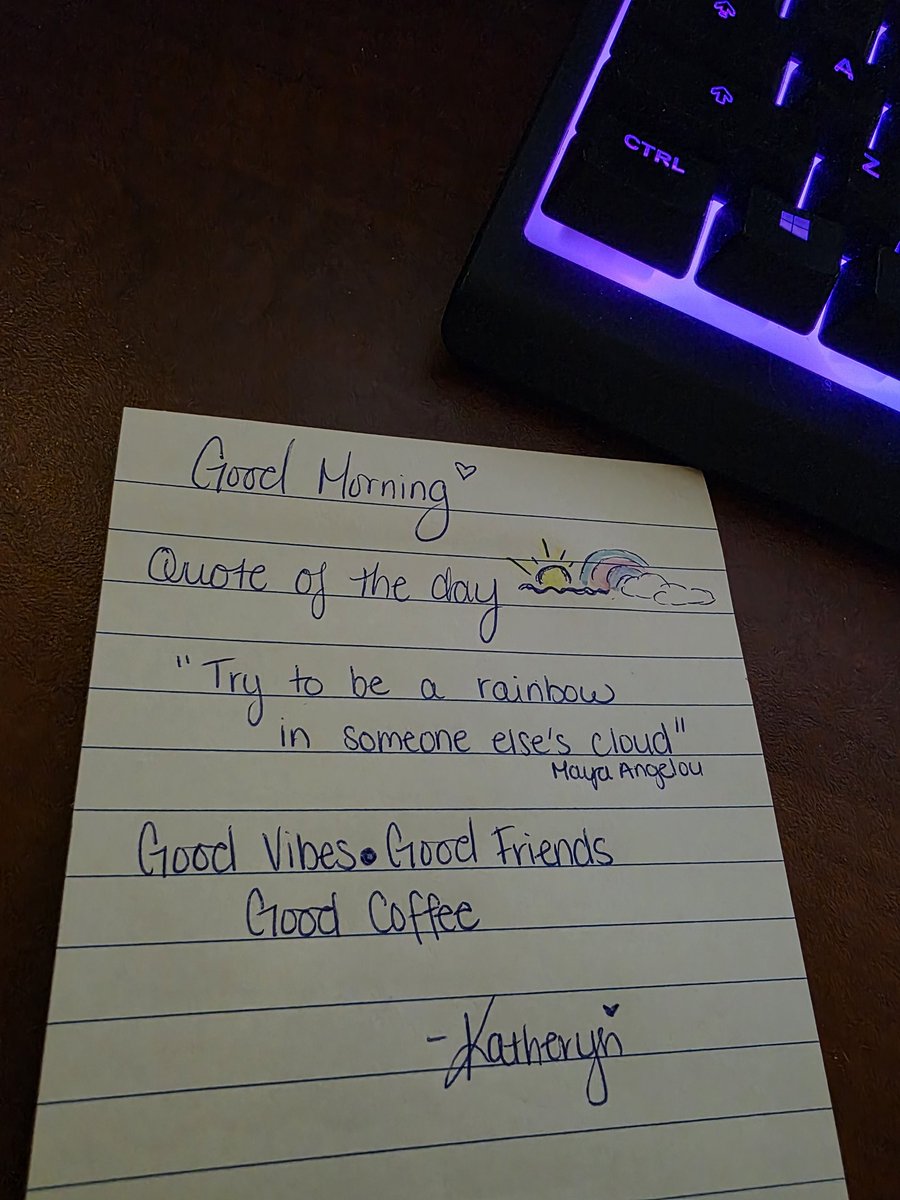 CTRL
A
Z
Good Morning ♡
Quote of the day
"Try to be a rainbow
in someone else's cloud"
Maya Angelou
Good Vibes • Good Friends
Good Coffee
- Katheryn